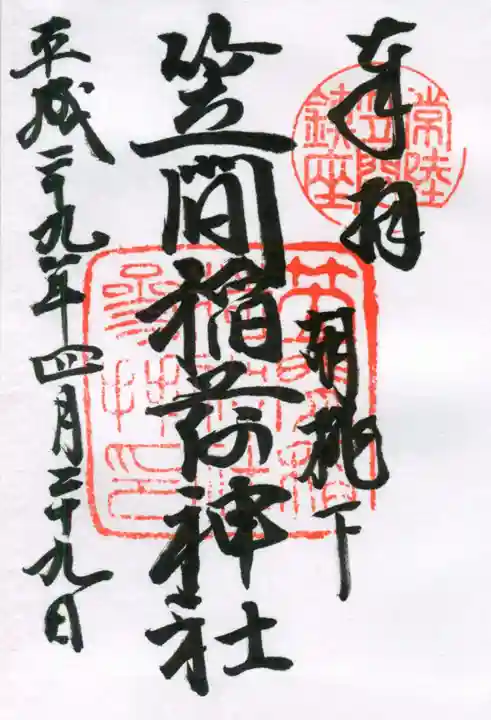 奉拝
常陸
笠間
鎮座
胡桃下
笠間稲荷神社
参拝之印
平成二十九年四月二十九日